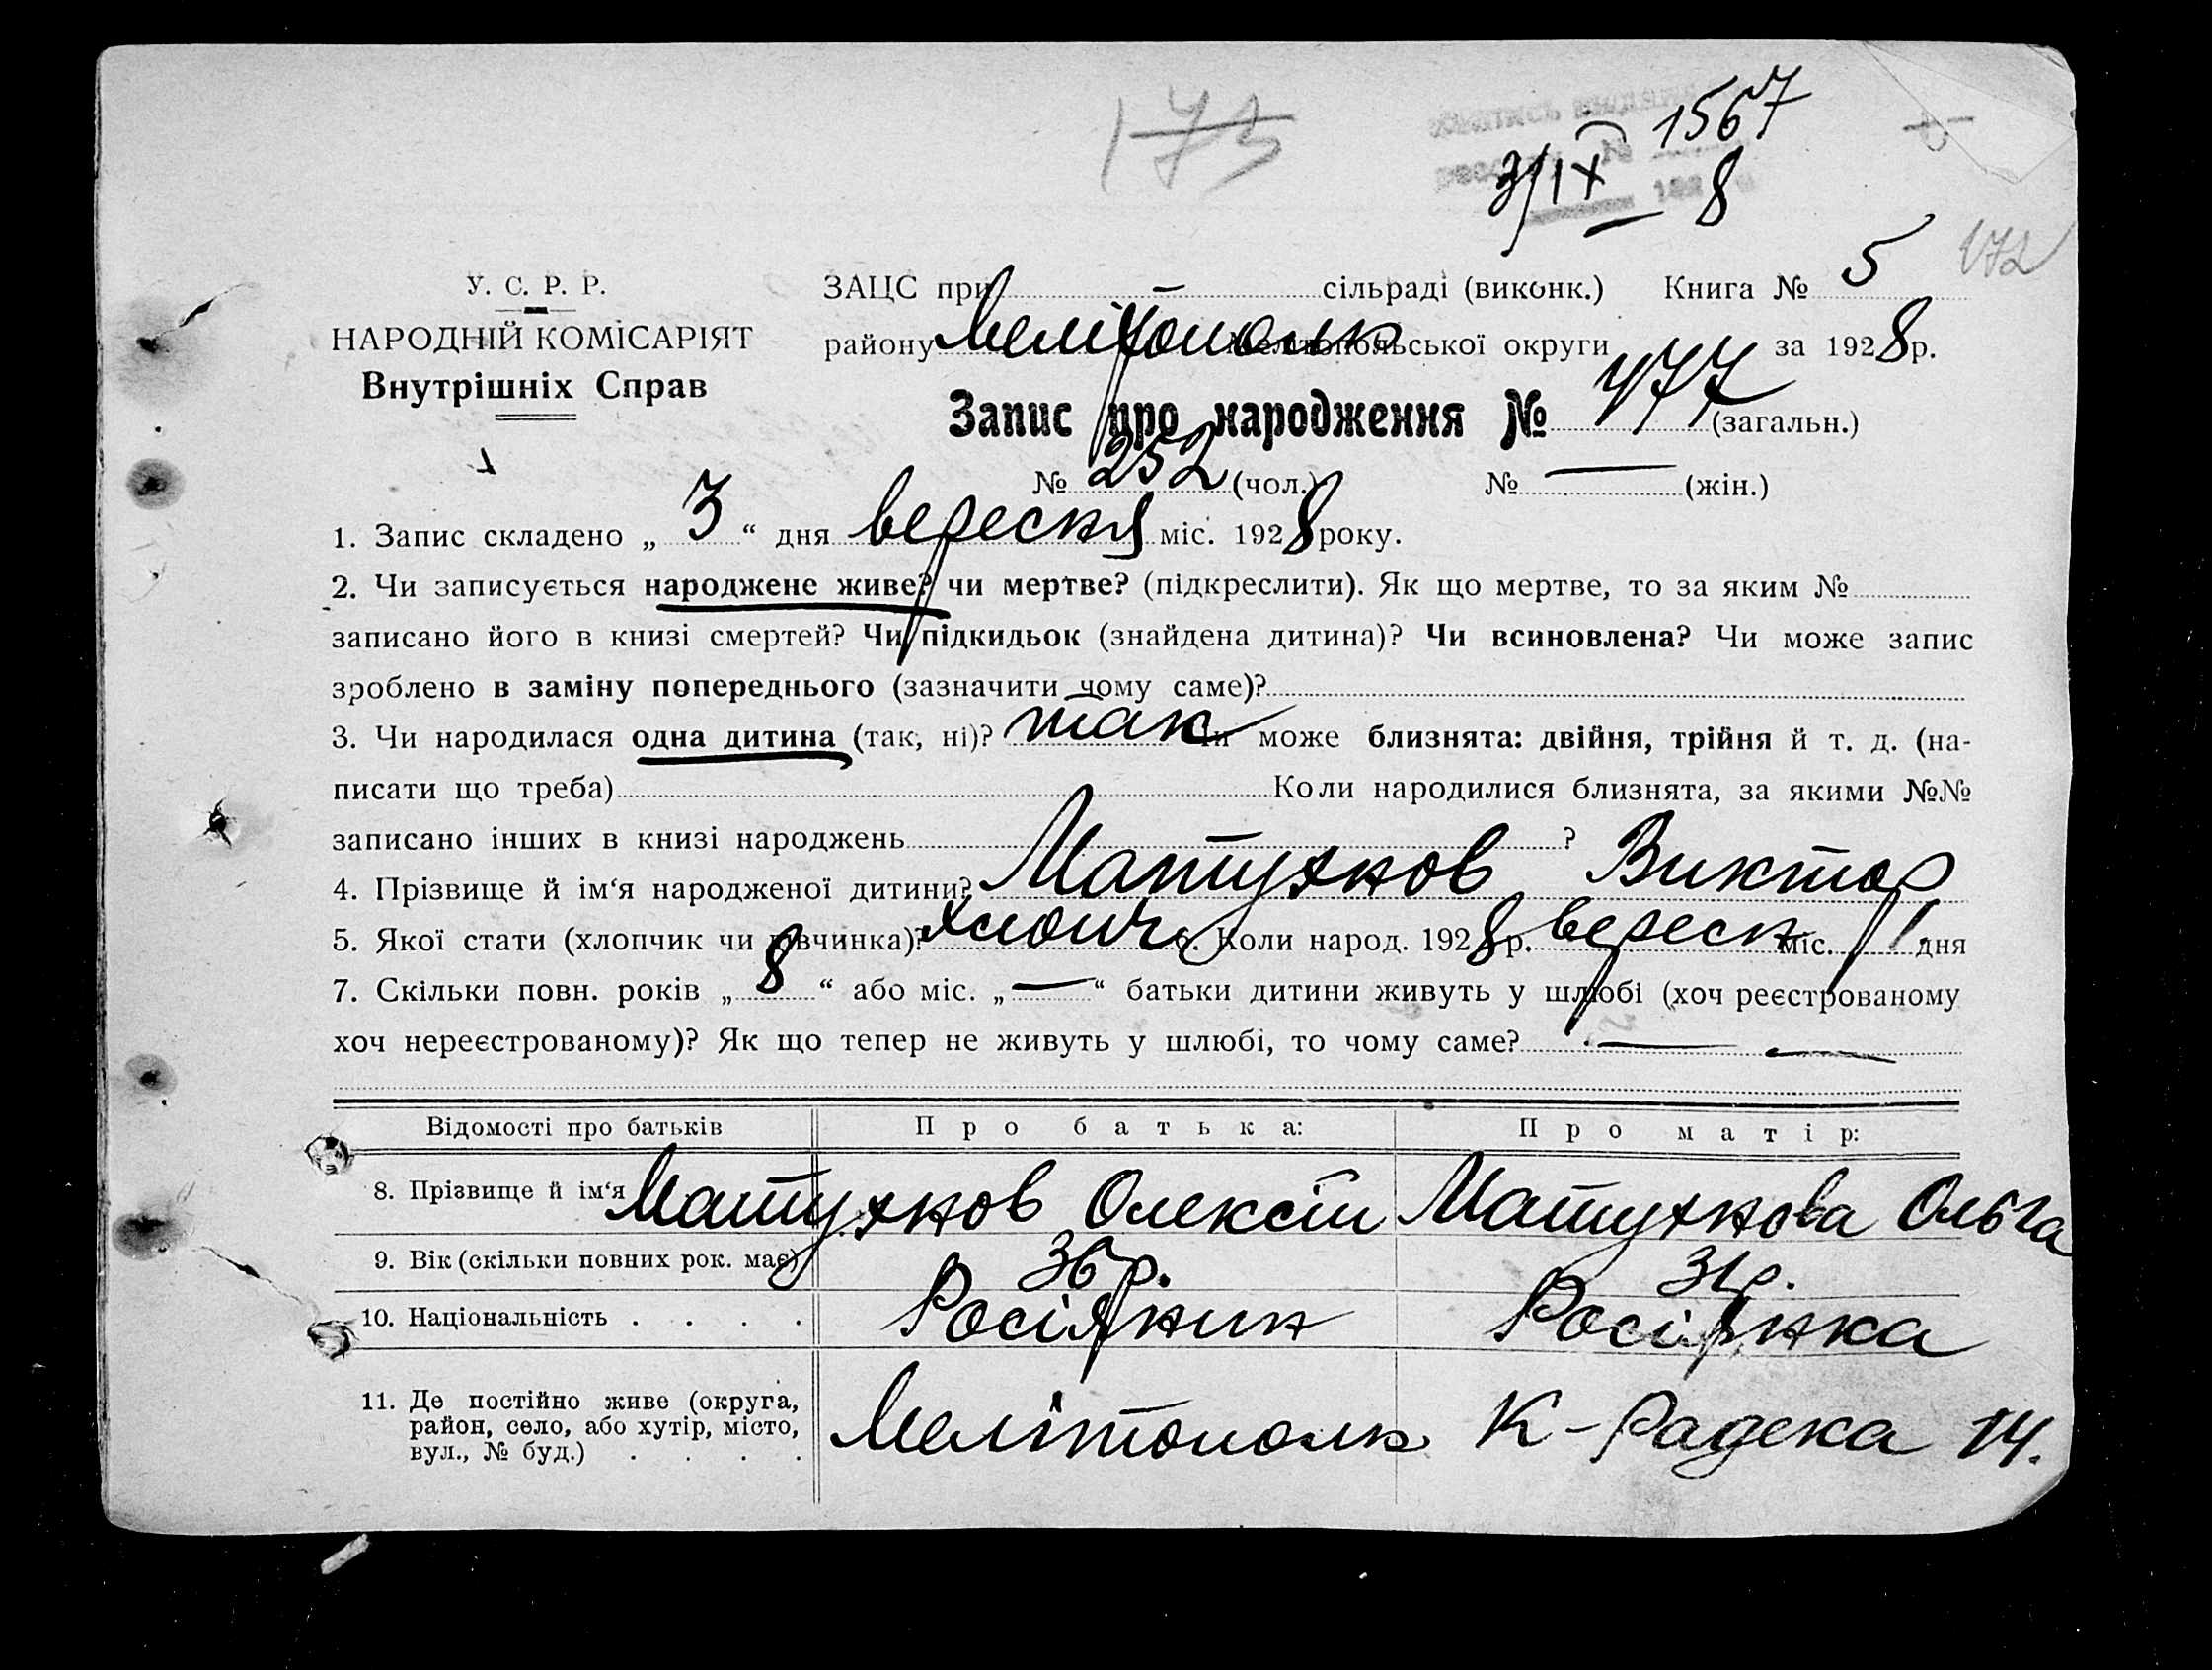 173
1567
3/IX 8
172
У. С. Р. Р.
НАРОДНІЙ КОМІСАРІЯТ
Внутрішніх Справ
ЗАЦС при сільраді (виконк.) Книга № 5
району Мелітополь Мелітопольської округи за 1928 р.
Запис про народження № 477 (загальн.)
№ 252 (чол.) № — (жін.)
1. Запис складено „ 3 “ дня вересня міс. 1928 року.
2. Чи записується народжене живе? чи мертве? (підкреслити). Як що мертве, то за яким №
записано його в книзі смертей? Чи підкидьок (знайдена дитина)? Чи всиновлена? Чи може запис
зроблено в заміну попереднього (зазначити чому саме)?
3. Чи народилася одна дитина (так, ні)? так Чи може близнята: двійня, трійня й т. д. (на-
писати що треба) Коли народилися близнята, за якими №№
записано інших в книзі народжень ?
4. Прізвище й ім‘я народженої дитини? Матухнов Виктор
5. Якої стати (хлопчик чи дівчинка)? хлопч 6. Коли народ. 1928 р. вересн міс. 1 дня
7. Скільки повн. років „ 8 “ або міс. „ — “ батьки дитини живуть у шлюбі (хоч реєстрованому
хоч нереєстрованому)? Як що тепер не живуть у шлюбі, то чому саме? — —
Відомості про батьків Про батька: Про матір:
8. Прізвище й ім‘я Матухнов Олексій Матухнова Ольга
9. Вік (скільки повних рок. має) 36 р. 31 р.
10. Національність . . . . Росіянин Росіянка
11. Де постійно живе (округа,
район, село, або хутір, місто,
вул., № буд.) . . . . Мелітополь К-Радека 14.